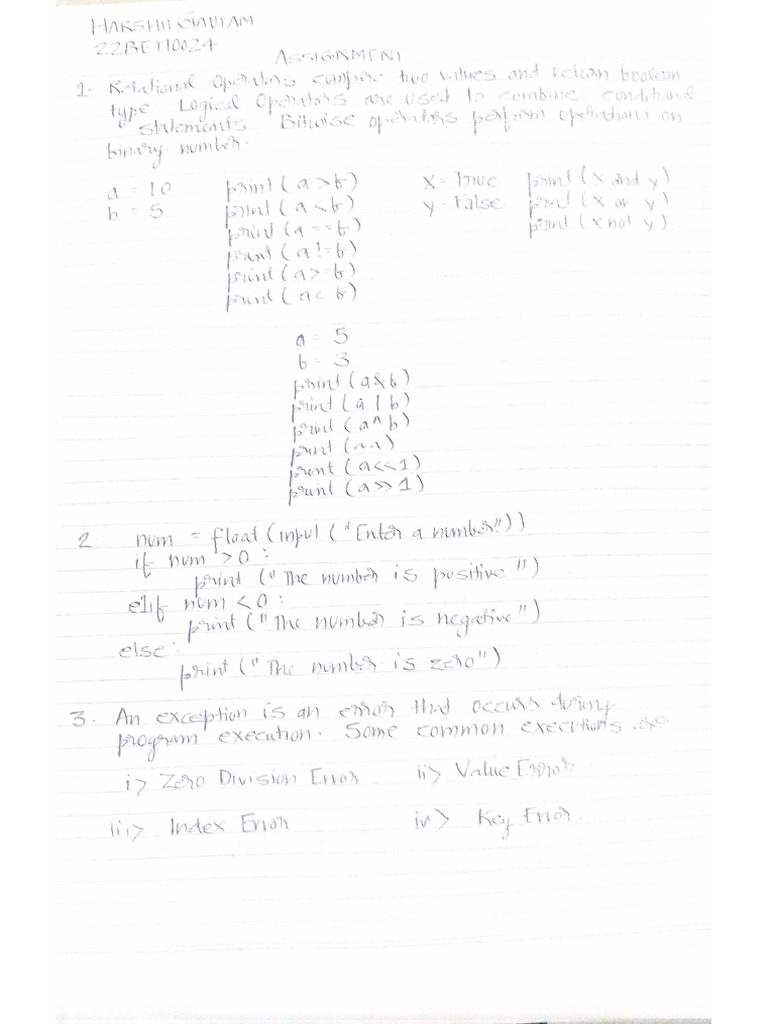 HARSHIL GAUTAM
22BET10024
ASSIGNMENT
1. Relational Operators compare two values and return boolean
type Logical Operators are used to combine conditional
statements Bitwise operators perform operations on
binary number.
a = 10 print (a > b) x = True print (x and y)
b = 5 print (a < b) y = False print (x or y)
print (a == b) print (x not y)
print (a != b)
print (a >= b)
print (a < b)
a = 5
b = 3
print (a & b)
print (a | b)
print (a ^ b)
print (~a)
print (a << 1)
print (a >> 1)
2 num = float (input ("Enter a number"))
if num > 0 :
print ("The number is positive")
elif num < 0 :
print ("The number is negative")
else:
print ("The number is zero")
3. An exception is an error that occurs during
program execution. Some common executions are
i> Zero Division Error ii> Value Error
iii> Index Error iv> Key Error.